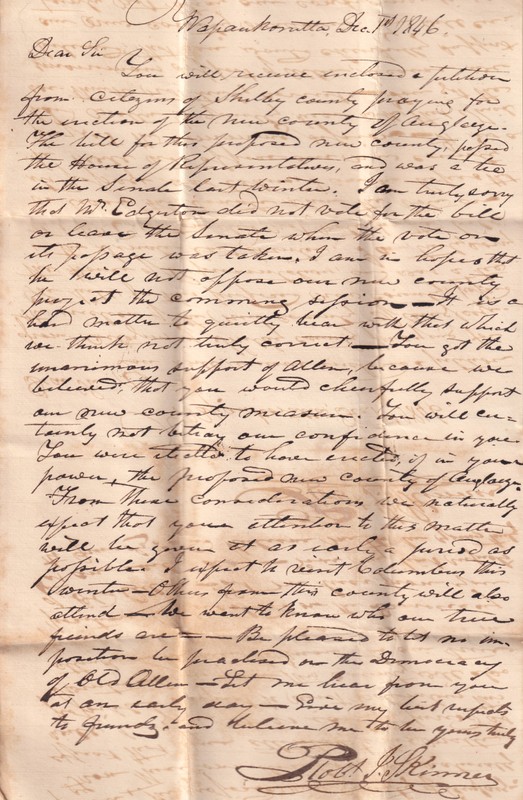 Wapaukonetta, Dec. 1st 1846.
Dear Sir
You will receive enclosed a petition
from citizens of Shelby county praying for
the erection of the new county of Auglaize.
The bill for this proposed new county, passed
the House of Representatives, and was a tie
in the Senate last winter. I am truly sorry
that Mr. Edgerton did not vote for the bill
or leave the Senate when the vote on
its passage was taken. I am in hopes that
he will not oppose our new county
project the comming session — It is a
hard matter to quietly bear with that which
we think not truly correct — You got the
unanimous support of Allen, because we
believed, that you would cheerfully support
our new county measure. You will cer-
tainly not betray our confidence in you
You were elected to have erected, if in your
power, the proposed new county of Auglaize
From these considerations we naturally
expect that your attention to this matter
will be given at as early a period as
possible. I expect to visit Columbus this
winter — Others from this county will also
attend — We want to know who our true
friends are — Be pleased to let no im-
position be practised on the Democracy
of Old Allen — Let me hear from you
at an early day — Give my best respects
to friends, and believe me to be yours truly
Robt. J. Skinner